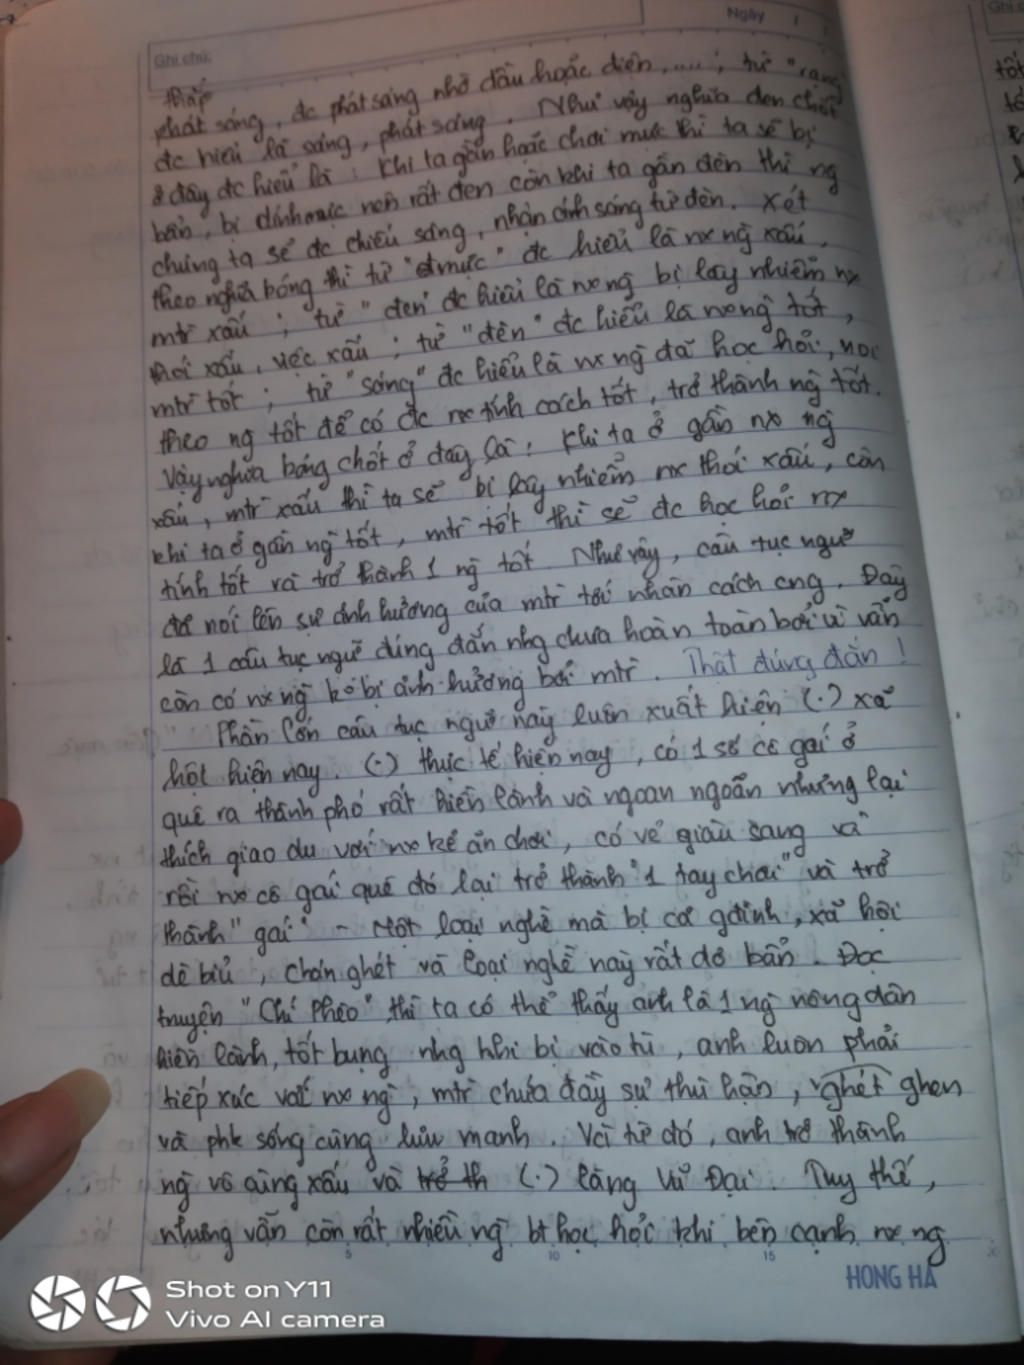 Ngày
Ghi chú:
thắp
phát sáng, đc phát sáng nhờ dầu hoặc điện,....; từ "rạng"
đc hiểu là sáng, phát sáng. Như vậy nghĩa đen chốt
ở đây đc hiểu là: Khi ta gần hoặc chơi mực thì ta sẽ bị
bẩn, bị dính mực nên rất đen còn khi ta gần đèn thì ng
chúng ta sẽ đc chiếu sáng, nhận ánh sáng từ đèn. Xét
theo nghĩa bóng thì từ "mực" đc hiểu là nx ng xấu,
mtr xấu; từ "đen" đc hiểu là nx ng bị lây nhiễm nx
thói xấu, việc xấu; từ "đèn" đc hiểu là nx ng tốt,
mtr tốt; từ "sáng" đc hiểu là nx ng đã học hỏi, noi
theo ng tốt để có đc nx tính cách tốt, trở thành ng tốt.
Vậy nghĩa bóng chốt ở đây là: Khi ta ở gần nx ng
xấu, mtr xấu thì ta sẽ bị lây nhiễm nx thói xấu, còn
khi ta ở gần ng tốt, mtr tốt thì sẽ đc học hỏi nx
tính tốt và trở thành 1 ng tốt. Như vậy, câu tục ngữ
đã nói lên sự ảnh hưởng của mtr tới nhân cách cng. Đây
là 1 câu tục ngữ đúng đắn nhg chưa hoàn toàn bởi vì vẫn
còn có nx ng ko bị ảnh hưởng bởi mtr. Thật đúng đắn!
Phần lớn câu tục ngữ này luôn xuất hiện (.) xã
hội hiện nay. (.) thực tế hiện nay, có 1 số cô gái ở
quê ra thành phố rất hiền lành và ngoan ngoãn nhưng lại
thích giao du với nx kẻ ăn chơi, có vẻ giàu sang và
rồi nx cô gái quê đó lại trở thành "1 tay chơi" và trở
thành "gái" - Một loại nghề mà bị cả gđình, xã hội
dè bỉu, chán ghét và loại nghề này rất dơ bẩn. Đọc
truyện "Chí Phèo" thì ta có thể thấy anh là 1 ng nông dân
hiền lành, tốt bụng nhg khi bị vào tù, anh luôn phải
tiếp xúc với nx ng, mtr chứa đầy sự thù hận, ghét ghen
và phk sống cũng lưu manh. Và từ đó, anh trở thành
ng vô cùng xấu và trở th (.) làng Vũ Đại. Tuy thế,
nhưng vẫn còn rất nhiều ng bt học hỏi khi bên cạnh nx ng
5 10 15
HONG HA
Shot on Y11
Vivo AI camera